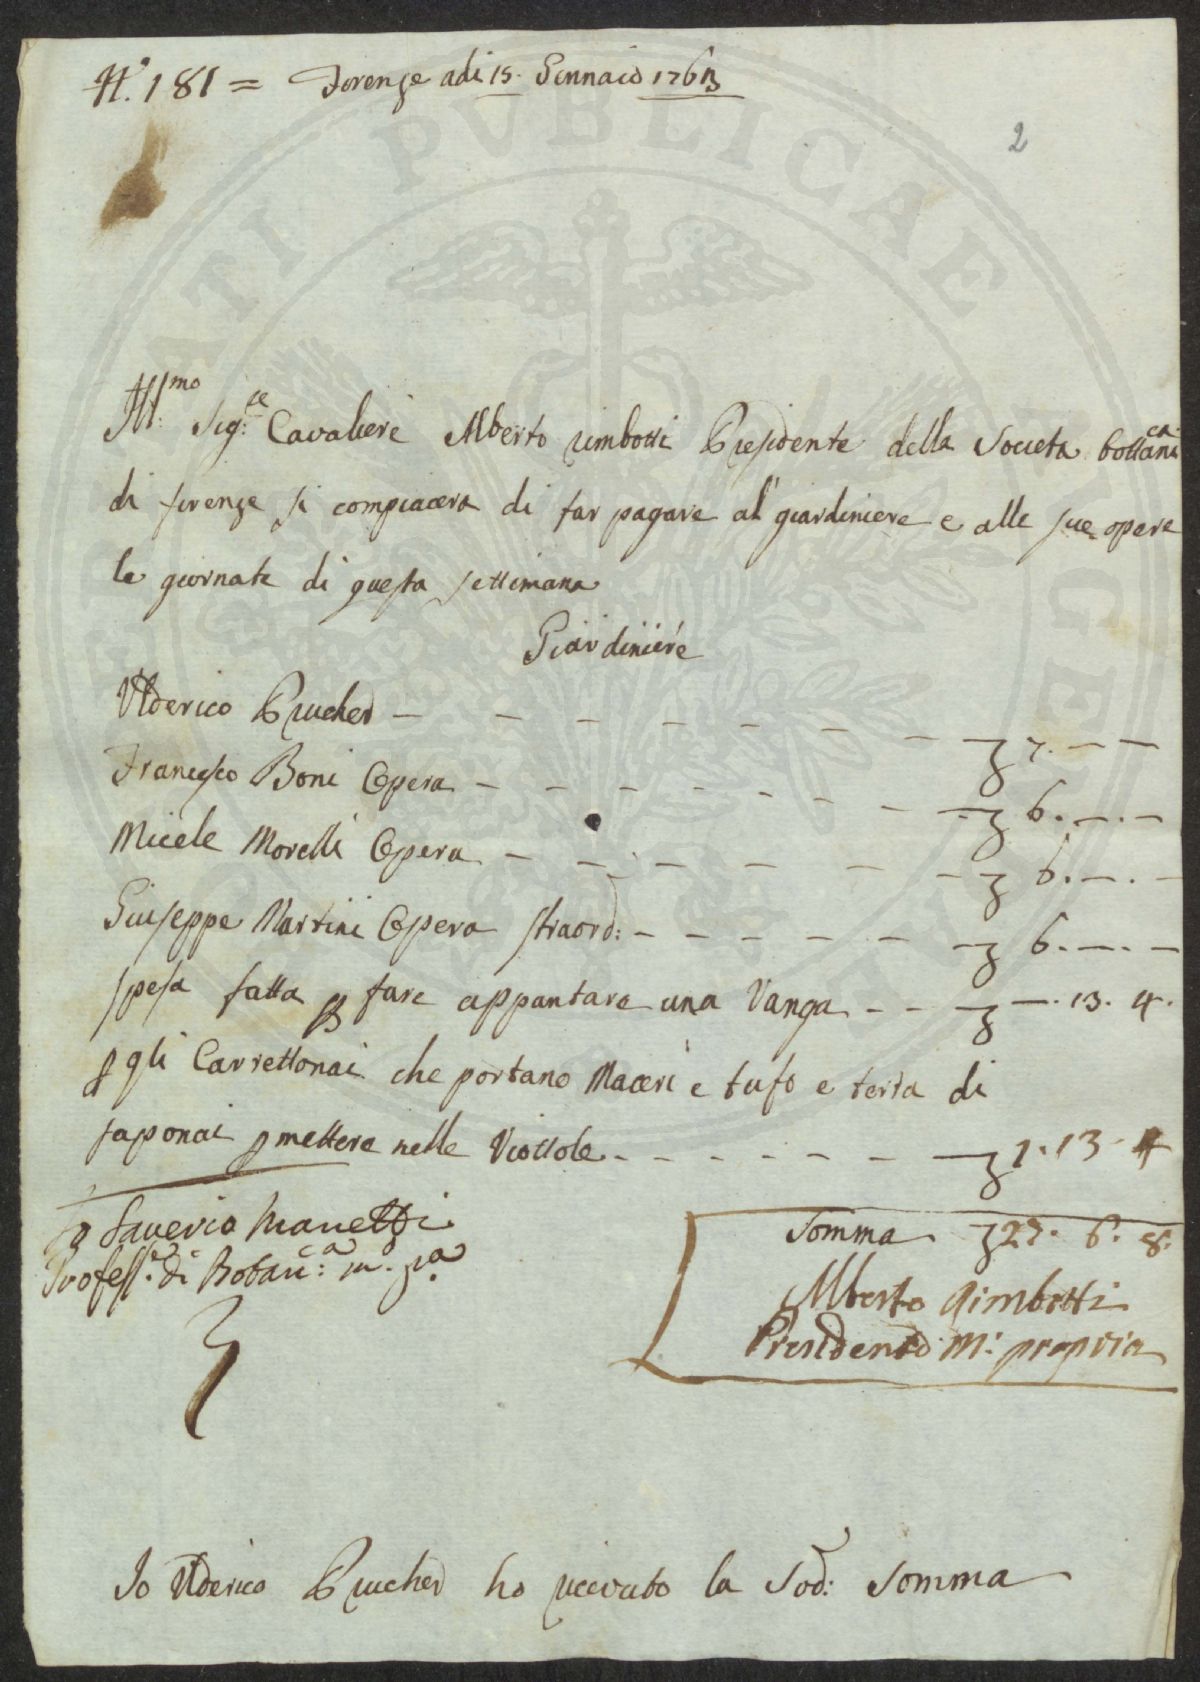 N.° 181 = Firenze adi 15. Gennaio 1763
2
Ill.mo Sig.re Cavaliere Alberto rimbotti Presidente della Societa bottanica
di firenze si compiacera di far pagare al' giardiniere e alle sue opere
le giornate di questa settimana
Giardiniere
Ulderico Prucher — — — — — — — — — ʒ 7. — —
Francesco Boni Opera — — — — — — — — ʒ 6. —. —
Micele Morelli Opera — — — — — — — ʒ 6. —. —
Giuseppe Martini Opera straord: — — — — — — ʒ 6. —. —
spesa fatta p fare appuntare una Vanga — — ʒ —. 13. 4.
p gli Carrettonai che portano Maceri e tufo e terra di
saponai p mettere nelle Viottole — — — — — — ʒ 1. 13. 4
Somma ʒ 27. 6. 8.
Saverio Manetti
Profess.e di Botan:ca m. pa
Alberto Rimbotti
Presidente M: propria
Io Ulderico Prucher ho ricevuto la Sod: Somma
PVBLICAE